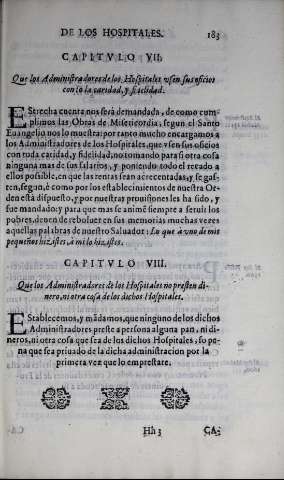 DE LOS HOSPITALES. 183
CAPITVLO VII.
Que los Administradores de los Hospitales vsen sus oficios
con toda caridad, y fidelidad.
EStrecha cuenta nos serà demandada, de como cum-
plimos las Obras de Misericordia; segun el Santo
Euangelio nos lo muestra: por tanto mucho encargamos a
los Administradores de los Hospitales, que vsen sus oficios
con toda caridad, y fidelidad, no tomando para si otra cosa
ninguna mas de sus salarios, y poniendo todo el recado a
ellos possible, en que las rentas sean acrecentadas, y se gas-
ten, segun, è como por los establecimientos de nuestra Or-
den està dispuesto, y por nuestras prouisiones les ha sido, y
fue mandado: y para que mas se animē siempre a seruir los
pobres, deuen de reboluer en sus memorias muchas vezes
aquellas palabras de nuestro Saluador: Lo que à vno de mis
pequeños hizistes à mi lo hizistes.
CAPITVLO VIII.
Que los Administradores de los Hospitales no presten di-
nero, ni otra cosa de los dichos Hospitales.
EStablecemos, y mādamos, que ninguno de los dichos
Administradores preste a persona alguna pan, ni di-
neros, ni otra cosa que sea de los dichos Hospitales, so pe-
na que sea priuado de la dicha administracion por la
primera vez que lo emprestare.
Hh 3 CA-